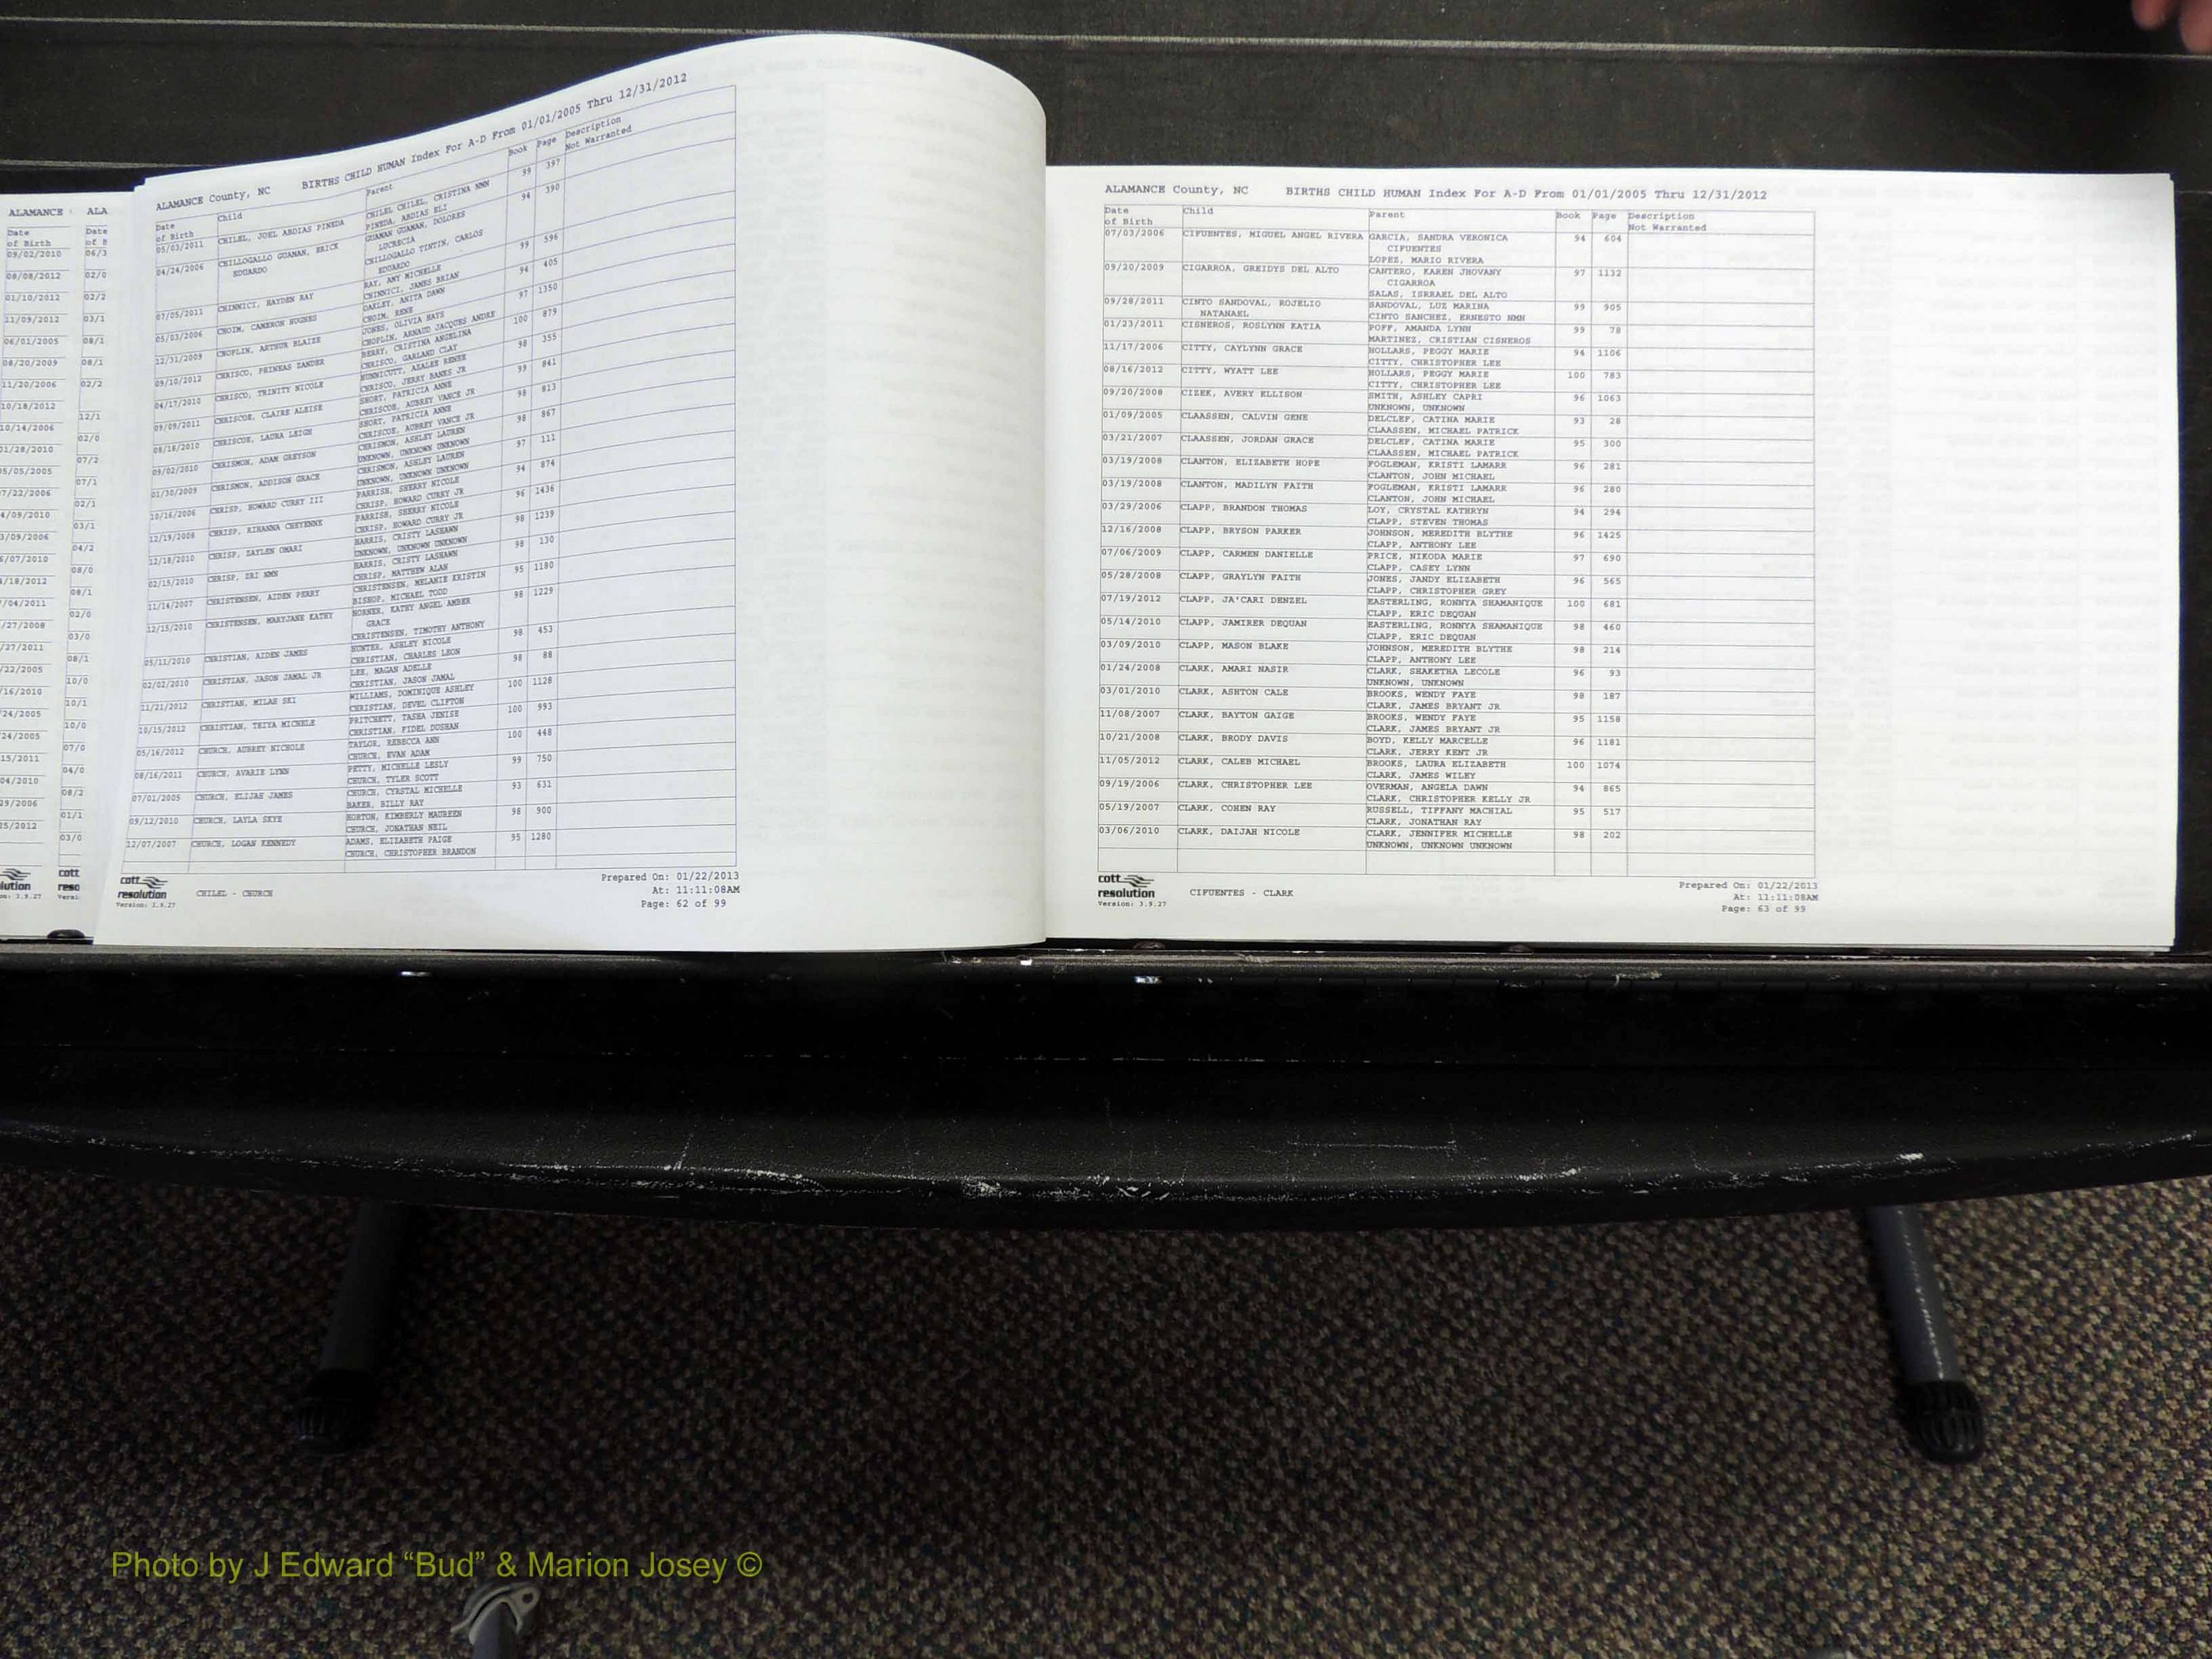 ALAMANCE County, NC BIRTHS CHILD HUMAN Index For A-D From 01/01/2005 Thru 12/31/2012
Date of Birth Child Parent Book Page Description Not Warranted
05/03/2011 CHILEL, JOEL ABDIAS PINEDA CHILEL CHILEL, CRISTINA NMN 99 397
PINEDA, ABDIAS ELI
04/24/2006 CHILLOGALLO GUAMAN, ERICK GUAMAN GUAMAN, DOLORES 94 390
EDUARDO LUCRECIA
CHILLOGALLO TINTIN, CARLOS
EDUARDO
07/05/2011 CHINNICI, HAYDEN RAY RAY, AMY MICHELLE 99 596
CHINNICI, JAMES BRIAN
05/03/2006 CHOIM, CAMERON HUGHES OAKLEY, ANITA DAWN 94 405
CHOIM, RENE
12/31/2009 CHOPLIN, ARTHUR BLAIZE JONES, OLIVIA HAYS 97 1350
CHOPLIN, ARNAUD JACQUES ANDRE
09/10/2012 CHRISCO, PHINEAS ZANDER BERRY, CRISTINA ANGELINA 100 879
CHRISCO, GARLAND CLAY
04/17/2010 CHRISCO, TRINITY NICOLE HUNNICUTT, AZALEE RENEE 98 355
CHRISCO, JERRY BANKS JR
09/09/2011 CHRISCOE, CLAIRE ALEISE SHORT, PATRICIA ANNE 99 841
CHRISCOE, AUBREY VANCE JR
08/18/2010 CHRISCOE, LAURA LEIGH SHORT, PATRICIA ANNE 98 813
CHRISCOE, AUBREY VANCE JR
09/02/2010 CHRISMON, ADAM GREYSON CHRISMON, ASHLEY LAUREN 98 867
UNKNOWN, UNKNOWN UNKNOWN
01/30/2009 CHRISMON, ADDISON GRACE CHRISMON, ASHLEY LAUREN 97 111
UNKNOWN, UNKNOWN UNKNOWN
10/16/2006 CHRISP, HOWARD CURRY III PARRISH, SHERRY NICOLE 94 874
CHRISP, HOWARD CURRY JR
12/19/2008 CHRISP, RIHANNA CHEYENNE PARRISH, SHERRY NICOLE 96 1436
CHRISP, HOWARD CURRY JR
12/18/2010 CHRISP, ZAYLEN OMARI HARRIS, CRISTY LASHAWN 98 1239
UNKNOWN, UNKNOWN UNKNOWN
02/15/2010 CHRISP, ZRI NMN HARRIS, CRISTY LASHAWN 98 130
CHRISP, MATTHEW ALAN
11/14/2007 CHRISTENSEN, AIDEN PERRY CHRISTENSEN, MELANIE KRISTIN 95 1180
BISHOP, MICHAEL TODD
12/15/2010 CHRISTENSEN, MARYJANE KATHY HORNER, KATHY ANGEL AMBER 98 1229
GRACE
CHRISTENSEN, TIMOTHY ANTHONY
05/11/2010 CHRISTIAN, AIDEN JAMES HUNTER, ASHLEY NICOLE 98 453
CHRISTIAN, CHARLES LEON
02/02/2010 CHRISTIAN, JASON JAMAL JR LEE, MAGAN ADELLE 98 88
CHRISTIAN, JASON JAMAL
11/21/2012 CHRISTIAN, MILAH SKI WILLIAMS, DOMINIQUE ASHLEY 100 1128
CHRISTIAN, DEVEL CLIFTON
10/15/2012 CHRISTIAN, TEIYA MICHELE PRITCHETT, TASHA JENISE 100 993
CHRISTIAN, FIDEL DUSHAN
05/16/2012 CHURCH, AUBREY NICHOLE TAYLOR, REBECCA ANN 100 448
CHURCH, EVAN ADAM
08/16/2011 CHURCH, AVARIE LYNN PETTY, MICHELLE LESLY 99 750
CHURCH, TYLER SCOTT
07/01/2005 CHURCH, ELIJAH JAMES CHURCH, CYRSTAL MICHELLE 93 631
BAKER, BILLY RAY
09/12/2010 CHURCH, LAYLA SKYE HORTON, KIMBERLY MAUREEN 98 900
CHURCH, JONATHAN NEIL
12/07/2007 CHURCH, LOGAN KENNEDY ADAMS, ELIZABETH PAIGE 95 1280
CHURCH, CHRISTOPHER BRANDON
cott resolution Version: 3.9.27
CHILEL - CHURCH
Prepared On: 01/22/2013
At: 11:11:08AM
Page: 62 of 99
ALAMANCE County, NC BIRTHS CHILD HUMAN Index For A-D From 01/01/2005 Thru 12/31/2012
Date of Birth Child Parent Book Page Description Not Warranted
07/03/2006 CIFUENTES, MIGUEL ANGEL RIVERA GARCIA, SANDRA VERONICA 94 604
CIFUENTES
LOPEZ, MARIO RIVERA
09/20/2009 CIGARROA, GREIDYS DEL ALTO CANTERO, KAREN JHOVANY 97 1132
CIGARROA
SALAS, ISRRAEL DEL ALTO
09/28/2011 CINTO SANDOVAL, ROJELIO SANDOVAL, LUZ MARINA 99 905
NATANAEL CINTO SANCHEZ, ERNESTO NMN
01/23/2011 CISNEROS, ROSLYNN KATIA POFF, AMANDA LYNN 99 78
MARTINEZ, CRISTIAN CISNEROS
11/17/2006 CITTY, CAYLYNN GRACE HOLLARS, PEGGY MARIE 94 1106
CITTY, CHRISTOPHER LEE
08/16/2012 CITTY, WYATT LEE HOLLARS, PEGGY MARIE 100 783
CITTY, CHRISTOPHER LEE
09/20/2008 CIZEK, AVERY ELLISON SMITH, ASHLEY CAPRI 96 1063
UNKNOWN, UNKNOWN
01/09/2005 CLAASSEN, CALVIN GENE DELCLEF, CATINA MARIE 93 28
CLAASSEN, MICHAEL PATRICK
03/21/2007 CLAASSEN, JORDAN GRACE DELCLEF, CATINA MARIE 95 300
CLAASSEN, MICHAEL PATRICK
03/19/2008 CLANTON, ELIZABETH HOPE FOGLEMAN, KRISTI LAMARR 96 281
CLANTON, JOHN MICHAEL
03/19/2008 CLANTON, MADILYN FAITH FOGLEMAN, KRISTI LAMARR 96 280
CLANTON, JOHN MICHAEL
03/29/2006 CLAPP, BRANDON THOMAS LOY, CRYSTAL KATHRYN 94 294
CLAPP, STEVEN THOMAS
12/16/2008 CLAPP, BRYSON PARKER JOHNSON, MEREDITH BLYTHE 96 1425
CLAPP, ANTHONY LEE
07/06/2009 CLAPP, CARMEN DANIELLE PRICE, NIKODA MARIE 97 690
CLAPP, CASEY LYNN
05/28/2008 CLAPP, GRAYLYN FAITH JONES, JANDY ELIZABETH 96 565
CLAPP, CHRISTOPHER GREY
07/19/2012 CLAPP, JA'CARI DENZEL EASTERLING, RONNYA SHAMANIQUE 100 681
CLAPP, ERIC DEQUAN
05/14/2010 CLAPP, JAMIRER DEQUAN EASTERLING, RONNYA SHAMANIQUE 98 460
CLAPP, ERIC DEQUAN
03/09/2010 CLAPP, MASON BLAKE JOHNSON, MEREDITH BLYTHE 98 214
CLAPP, ANTHONY LEE
01/24/2008 CLARK, AMARI NASIR CLARK, SHAKETHA LECOLE 96 93
UNKNOWN, UNKNOWN
03/01/2010 CLARK, ASHTON CALE BROOKS, WENDY FAYE 98 187
CLARK, JAMES BRYANT JR
11/08/2007 CLARK, BAYTON GAIGE BROOKS, WENDY FAYE 95 1158
CLARK, JAMES BRYANT JR
10/21/2008 CLARK, BRODY DAVIS BOYD, KELLY MARCELLE 96 1181
CLARK, JERRY KENT JR
11/05/2012 CLARK, CALEB MICHAEL BROOKS, LAURA ELIZABETH 100 1074
CLARK, JAMES WILEY
09/19/2006 CLARK, CHRISTOPHER LEE OVERMAN, ANGELA DAWN 94 865
CLARK, CHRISTOPHER KELLY JR
05/19/2007 CLARK, COHEN RAY RUSSELL, TIFFANY MACHIAL 95 517
CLARK, JONATHAN RAY
03/06/2010 CLARK, DAIJAH NICOLE CLARK, JENNIFER MICHELLE 98 202
UNKNOWN, UNKNOWN UNKNOWN
cott resolution Version: 3.9.27
CIFUENTES - CLARK
Prepared On: 01/22/2013
At: 11:11:08AM
Page: 63 of 99
Photo by J Edward “Bud” & Marion Josey ©